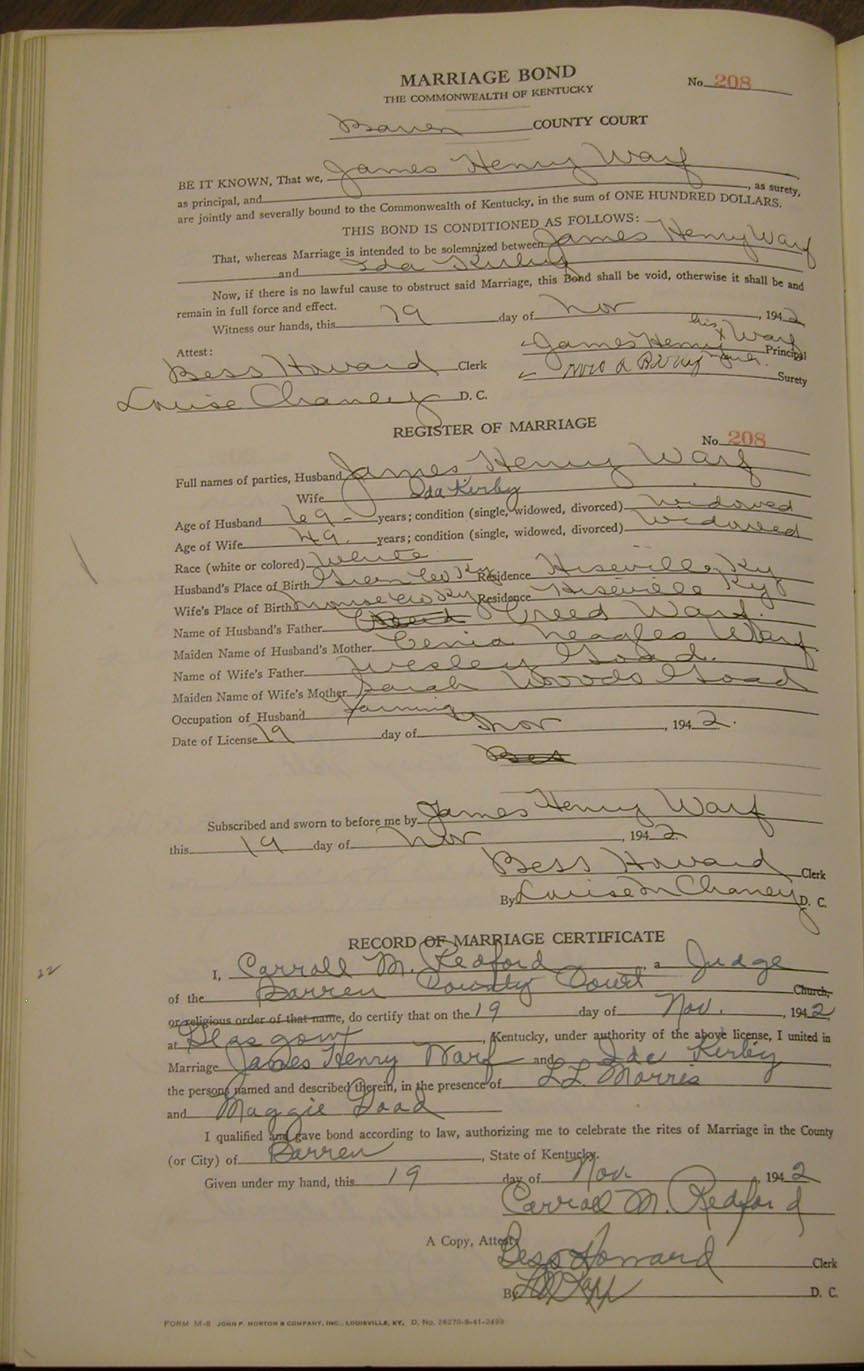 MARRIAGE BOND
No. 208
THE COMMONWEALTH OF KENTUCKY
Barren COUNTY COURT
BE IT KNOWN, That we, James Henry Warf
as principal, and , as surety,
are jointly and severally bound to the Commonwealth of Kentucky, in the sum of ONE HUNDRED DOLLARS.
THIS BOND IS CONDITIONED AS FOLLOWS:
That, whereas Marriage is intended to be solemnized between James Henry Warf
and Ida Kirby
Now, if there is no lawful cause to obstruct said Marriage, this Bond shall be void, otherwise it shall be and
remain in full force and effect.
Witness our hands, this 19 day of Nov , 1942
Attest: James Henry his x Warf Principal
Bess Howard Clerk
Surety
Louise Chaney D. C.
REGISTER OF MARRIAGE
No. 208
Full names of parties, Husband James Henry Warf
Wife Ida Kirby
Age of Husband 69 years; condition (single, widowed, divorced) Widowed
Age of Wife 49 years; condition (single, widowed, divorced) Widowed
Race (white or colored) White
Husband's Place of Birth Green Co Ky Residence Hiseville Ky
Wife's Place of Birth Monroe Co Ky Residence Hiseville Ky
Name of Husband's Father Creed Warf.
Maiden Name of Husband's Mother Neagles Warf
Name of Wife's Father Wesley Goad.
Maiden Name of Wife's Mother Sarah Woods Goad
Occupation of Husband Farming
Date of License 19 day of Nov , 1942.
Bes
Subscribed and sworn to before me by James Henry Warf
this 19 day of Nov , 1942
Bess Howard Clerk
By Louise M Chaney D. C.
RECORD OF MARRIAGE CERTIFICATE
I, Carroll M. Redford , a Judge
of the Barren County Court Church,
or religious order of that name, do certify that on the 19 day of Nov. , 1942
at Glasgow , Kentucky, under authority of the above license, I united in
Marriage James Henry Warf and Ida Kirby
the persons named and described therein, in the presence of L L Morris
and Maggie Goad
I qualified and gave bond according to law, authorizing me to celebrate the rites of Marriage in the County
(or City) of Barren , State of Kentucky.
Given under my hand, this 19 day of Nov , 1942
Carroll M. Redford
A Copy, Attest:
Bess Howard Clerk
By D. C.
FORM M-8 JOHN P. MORTON & COMPANY, INC., LOUISVILLE, KY. D. No. 28270-S-41-2499